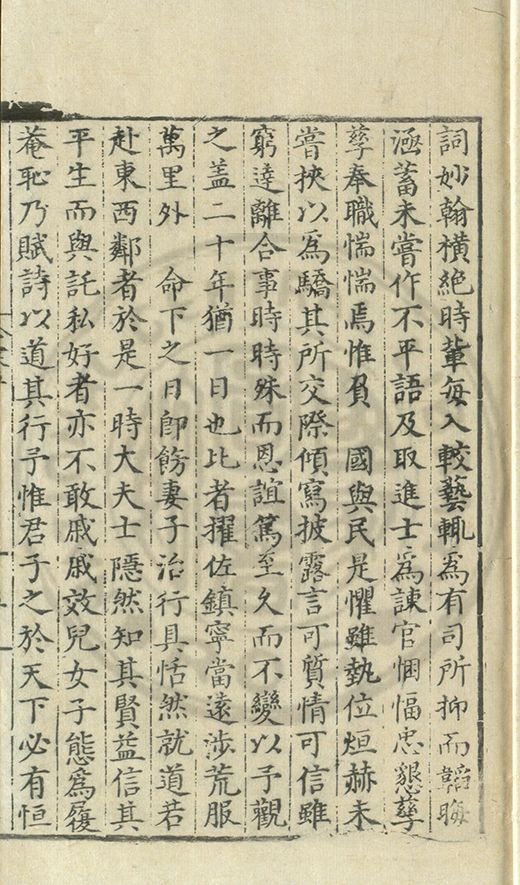 詞妙翰横絶時軰每入較藝輒爲有司所抑而韜晦
涵蓄未嘗作不平語及取進士爲諌官悃愊忠懇孳
孳奉職惴惴焉惟負　國與民是懼雖埶位烜赫未
嘗挾以爲驕其所交際傾寫披露言可質情可信雖
窮達離合事時時殊而恩誼篤至久而不變以予觀
之盖二十年猶一日也比者擢佐鎮寧當遠涉荒服
萬里外　命下之日即飭妻子治行具恬然就道若
赴東西鄰者於是一時大夫士隱然知其賢益信其
平生而與託私好者亦不敢戚戚效兒女子態爲履
菴恥乃賦詩以道其行予惟君子之於天下必有恒